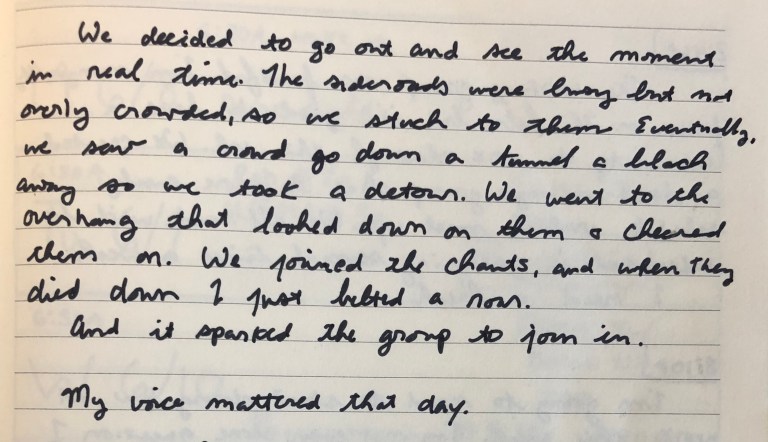 We decided to go out and see the moment
in real time. The sideroads were busy but not
overly crowded, so we stuck to them Eventually,
we saw a crowd go down a tunnel a block
away so we took a detour. We went to the
overhang that looked down on them & cheered
them on. We joined the chants, and when they
died down I just belted a roar.
And it sparked the group to join in.
My voice mattered that day.